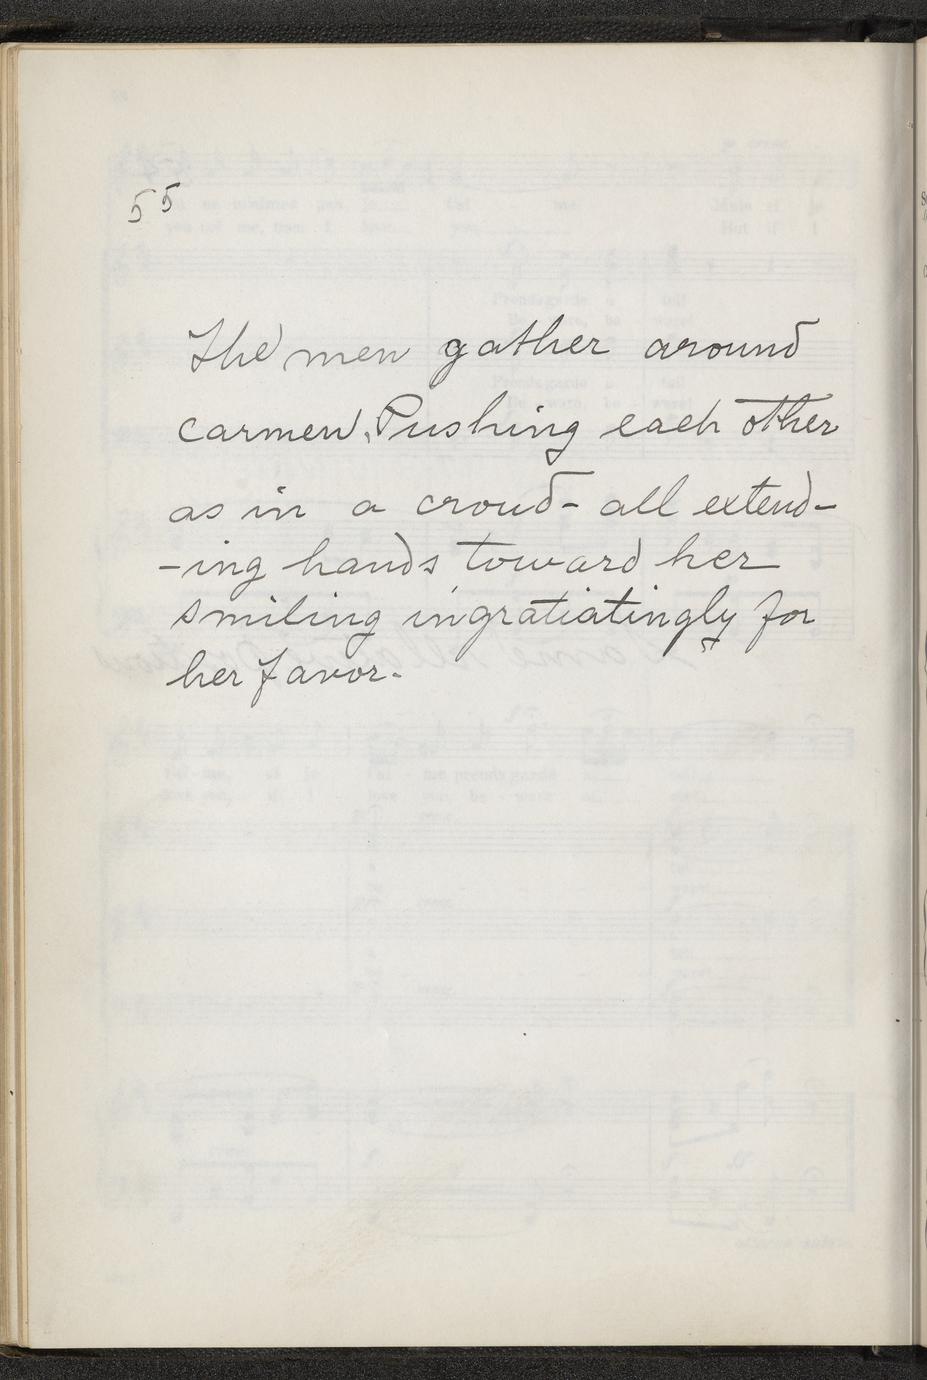 55
The men gather around
carmen. Pushing each other
as in a croud - all extend-
-ing hands toward her
smiling ingratiatingly for
her favor.